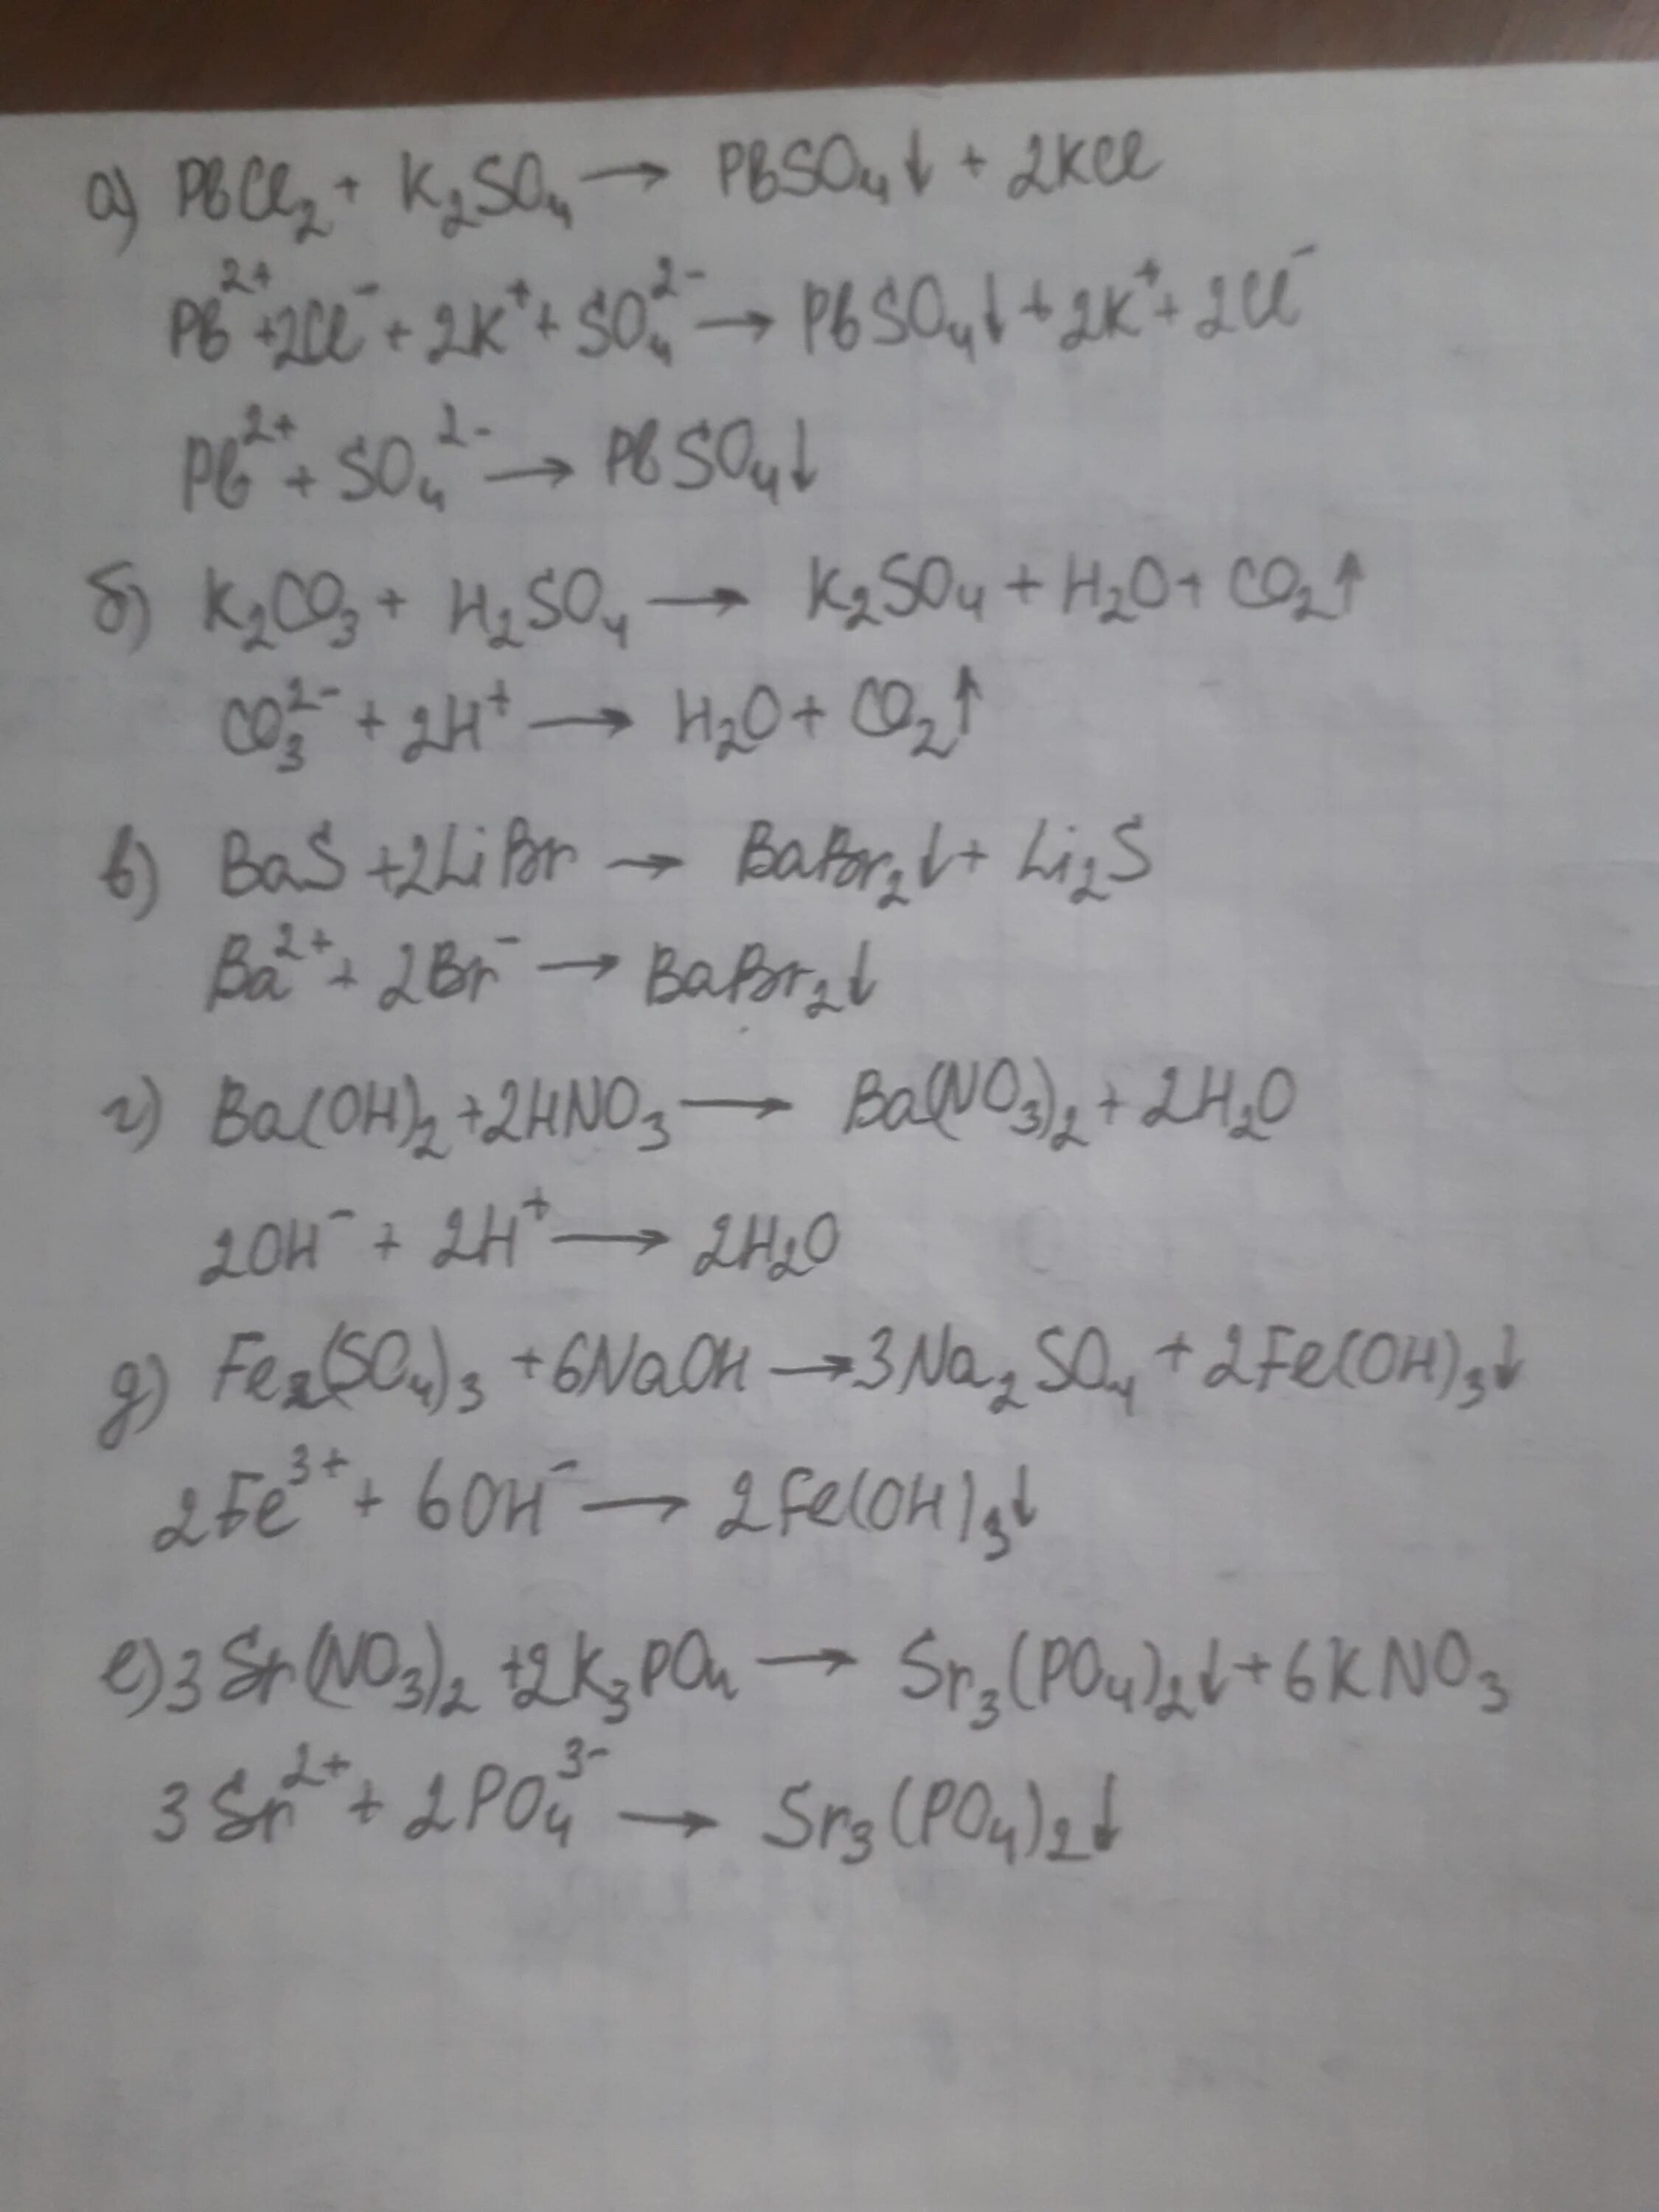 а) PbCl₂ + K₂SO₄ → PbSO₄↓ + 2KCl
Pb²⁺ + 2Cl⁻ + 2K⁺ + SO₄²⁻ → PbSO₄↓ + 2K⁺ + 2Cl⁻
Pb²⁺ + SO₄²⁻ → PbSO₄↓
б) K₂CO₃ + H₂SO₄ → K₂SO₄ + H₂O + CO₂↑
CO₃²⁻ + 2H⁺ → H₂O + CO₂↑
в) BaS + 2LiBr → BaBr₂↓ + Li₂S
Ba²⁺ + 2Br⁻ → BaBr₂↓
г) Ba(OH)₂ + 2HNO₃ → Ba(NO₃)₂ + 2H₂O
2OH⁻ + 2H⁺ → 2H₂O
д) Fe₂(SO₄)₃ + 6NaOH → 3Na₂SO₄ + 2Fe(OH)₃↓
2Fe³⁺ + 6OH⁻ → 2Fe(OH)₃↓
е) 3Sr(NO₃)₂ + 2K₃PO₄ → Sr₃(PO₄)₂↓ + 6KNO₃
3Sr²⁺ + 2PO₄³⁻ → Sr₃(PO₄)₂↓